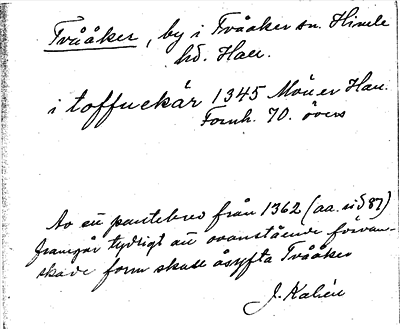 Tvååker, by i Tvååker sn. Himle
hd. Hall.
i toffuckár 1345 Möller Hall.
Fornh. 70. övers
Av ett pantebrev från 1362 (aa. sid 87)
framgår tydligt att ovanstående förvan-
skade form skall åsyfta Tvååker
J. Kalén